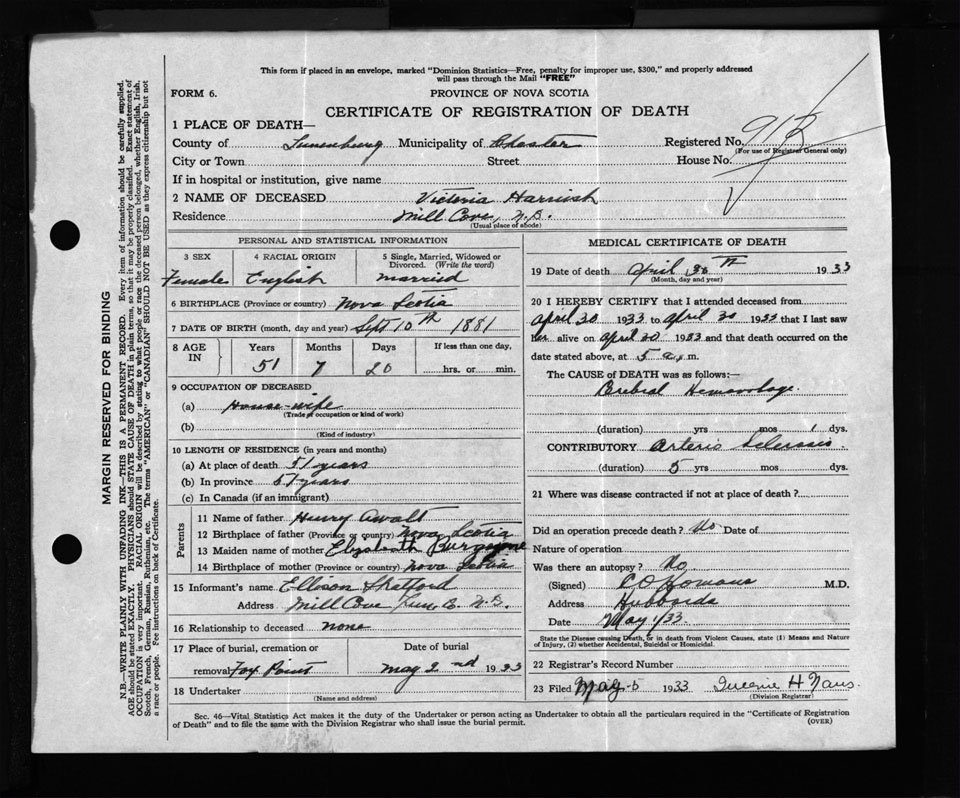 This form if placed in an envelope, marked "Dominion Statistics—Free, penalty for improper use, $300," and properly addressed
will pass through the Mail "FREE"
FORM 6. PROVINCE OF NOVA SCOTIA
CERTIFICATE OF REGISTRATION OF DEATH
1 PLACE OF DEATH—
County of Lunenburg Municipality of Chester Registered No.
(For use of Registrar General only)
City or Town Street House No.
If in hospital or institution, give name
2 NAME OF DECEASED Victoria Harnish
Residence Mill Cove, N.S.
(Usual place of abode)
PERSONAL AND STATISTICAL INFORMATION
3 SEX 4 RACIAL ORIGIN 5 Single, Married, Widowed or
Divorced. (Write the word)
Female English married
6 BIRTHPLACE (Province or country) Nova Scotia
7 DATE OF BIRTH (month, day and year) Sept 10th 1881
8 AGE IN Years Months Days If less than one day,
51 7 20 hrs. or min.
9 OCCUPATION OF DECEASED
(a) House-wife
(Trade or occupation or kind of work)
(b)
(Kind of industry)
10 LENGTH OF RESIDENCE (in years and months)
(a) At place of death 51 years
(b) In province 51 years
(c) In Canada (if an immigrant)
Parents
11 Name of father Henry Awalt
12 Birthplace of father (Province or country) Nova Scotia
13 Maiden name of mother Elizabeth Burgoyne
14 Birthplace of mother (Province or country) Nova Scotia
15 Informant's name Ellison Shatford
Address Mill Cove Lun. Co. N.S.
16 Relationship to deceased none
17 Place of burial, cremation or Date of burial
removal Fox Point May 2nd 1933
18 Undertaker
(Name and address)
MEDICAL CERTIFICATE OF DEATH
19 Date of death April 30th 1933
(Month, day and year)
20 I HEREBY CERTIFY that I attended deceased from
April 30 1933 to April 30 1933 that I last saw
her alive on April 30 1933 and that death occurred on the
date stated above, at 5 a.m.
The CAUSE of DEATH was as follows:—
Cerebral Hemorrhage.
(duration) yrs mos 1 dys.
CONTRIBUTORY Arterio Sclerosis
(duration) 5 yrs mos dys.
21 Where was disease contracted if not at place of death?
Did an operation precede death? No Date of
Nature of operation
Was there an autopsy? No
(Signed) M.D.
Address Hubbards
Date May 1/33.
State the Disease causing Death, or in death from Violent Causes, state (1) Means and Nature
of Injury, (2) whether Accidental, Suicidal or Homicidal.
22 Registrar's Record Number
23 Filed May 1933
(Division Registrar)
Sec. 46—Vital Statistics Act makes it the duty of the Undertaker or person acting as Undertaker to obtain all the particulars required in the "Certificate of Registration
of Death" and to file the same with the Division Registrar who shall issue the burial permit. (OVER)
MARGIN RESERVED FOR BINDING
N.B.—WRITE PLAINLY WITH UNFADING INK—THIS IS A PERMANENT RECORD. Every item of information should be carefully supplied.
AGE should be stated EXACTLY. PHYSICIANS should STATE CAUSE OF DEATH in plain terms, so that it may be properly classified. Exact statement of
OCCUPATION is very important. RACIAL ORIGIN will be described by stating to what people or race the deceased person belonged, whether English, Irish,
Scotch, French, German, Russian, Ruthenian, etc. The terms "AMERICAN" or "CANADIAN" SHOULD NOT BE USED as they express citizenship but not
a race or people. See instructions on back of Certificate.